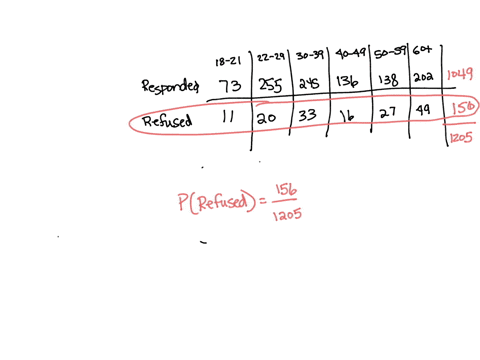 18-21 22-29 30-39 40-49 50-59 60+
Responded 73 255 245 136 138 202 1049
Refused 11 20 33 16 27 49 156
1205
P(Refused) = 156
1205